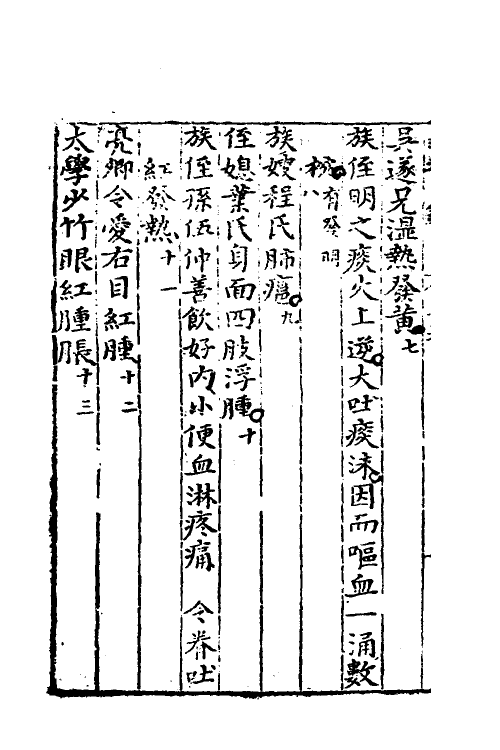 吳遂兄濕熱發黃七
族侄明之痰火上逆大吐痰沫因而嘔血一涌數
椀有發明八
族嫂程氏肺癰九
侄媳葉氏身面四肢浮腫十
族侄孫伍仲善飲好內小便血淋疼痛 令眷吐
紅發熱十一
亮卿令愛右目紅腫十二
太學少竹眼紅腫脹十三